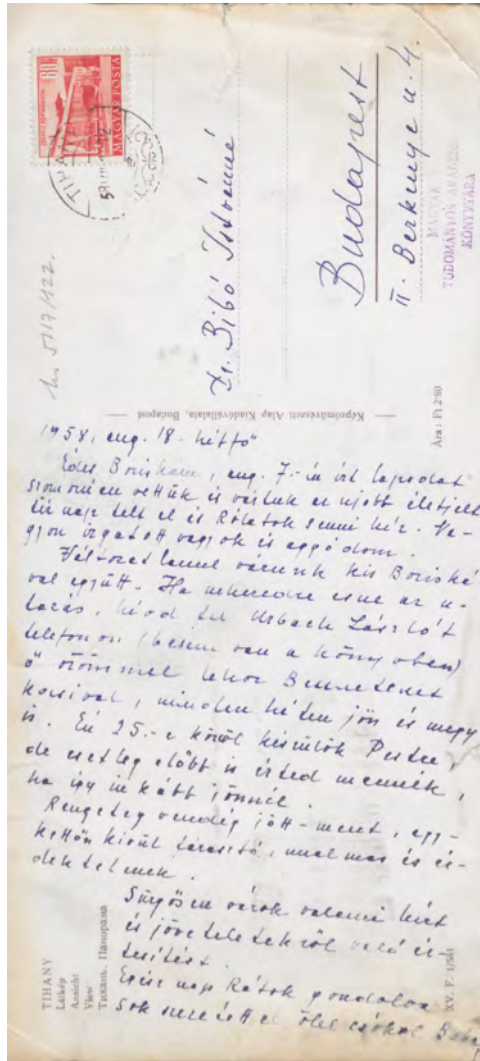 TIHANY
MAGYAR POSTA
60 f
Ms 5117/122.
Dr. Bibó Istvánné
Budapest
II. Berkenye u. 4.
MAGYAR
TUDOMÁNYOS AKADÉMIA
KÖNYVTÁRA
Képzőművészeti Alap Kiadóvállalata, Budapest
Ára: Ft 2·80
1958. aug. 18. hétfő
Édes Boriskám, aug. 7-én írt lapodat
szomorúan vettük és vártuk az ujabb életjelt
tíz nap telt el és Rólatok semmi hír. Na-
gyon izgatott vagyok és aggódom.
Változatlanul várunk kis Boriská
val együtt. Ha nehezedre esne az u-
tazás, hívd fel Urbach Lászlót
telefonon (benn van a könyvben)
ő örömmel lehoz Benneteket
kocsival, minden héten jön és megy
is. Én 25.-e körül készülök Pestre,
de esetleg előbb is érted mennék,
ha így inkább jönnél.
Rengeteg vendég jött-ment, egy-
kettőn kívül fárasztó, unalmas és ér-
dektelenek.
Sürgősen várok valami hírt
és jöveteletekről való ér-
tesítést.
Egész nap Rátok gondolva
sok szeretettel ölel csókol
TIHANY
Látkép
Ansicht
View
Тихань. Панорама
XV. F. 1/581